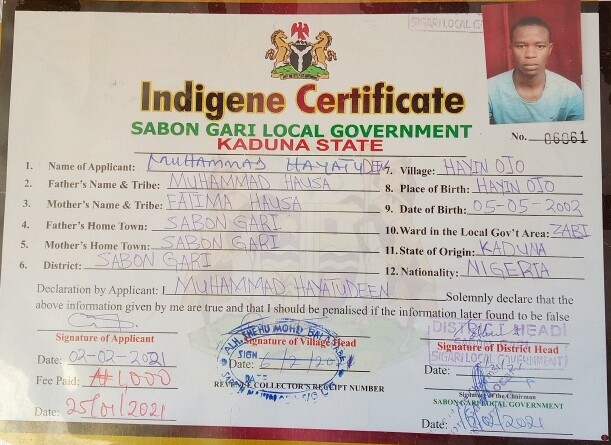 SIGARI LOCAL G
Indigene Certificate
SABON GARI LOCAL GOVERNMENT
KADUNA STATE
No. 06061
1. Name of Applicant: MUHAMMAD HAYATUDEEN
2. Father's Name & Tribe: MUHAMMAD HAUSA
3. Mother's Name & Tribe: FATIMA HAUSA
4. Father's Home Town: SABON GARI
5. Mother's Home Town: SABON GARI
6. District: SABON GARI
7. Village: HAYIN OJO
8. Place of Birth: HAYIN OJO
9. Date of Birth: 05-05-2002
10. Ward in the Local Gov't Area: ZABI
11. State of Origin: KADUNA
12. Nationality: NIGERIA
Declaration by Applicant: I MUHAMMAD HAYATUDEEN Solemnly declare that the
above information given by me are true and that I should be penalised if the information later found to be false
Signature of Applicant
Date: 02-02-2021
Fee Paid: ₦1,000
Date: 25/01/2021
ALH. SHEHU MOHD
SIGN
DATE
Signature of Village Head
Date: 6/2/2021
REVENUE COLLECTOR'S RECEIPT NUMBER
DISTRICT HEAD
SIGARI LOCAL GOVERNMENT
Signature of District Head
Signature of the Chairman
SABON GARI LOCAL GOVERNMENT
Date: /2021